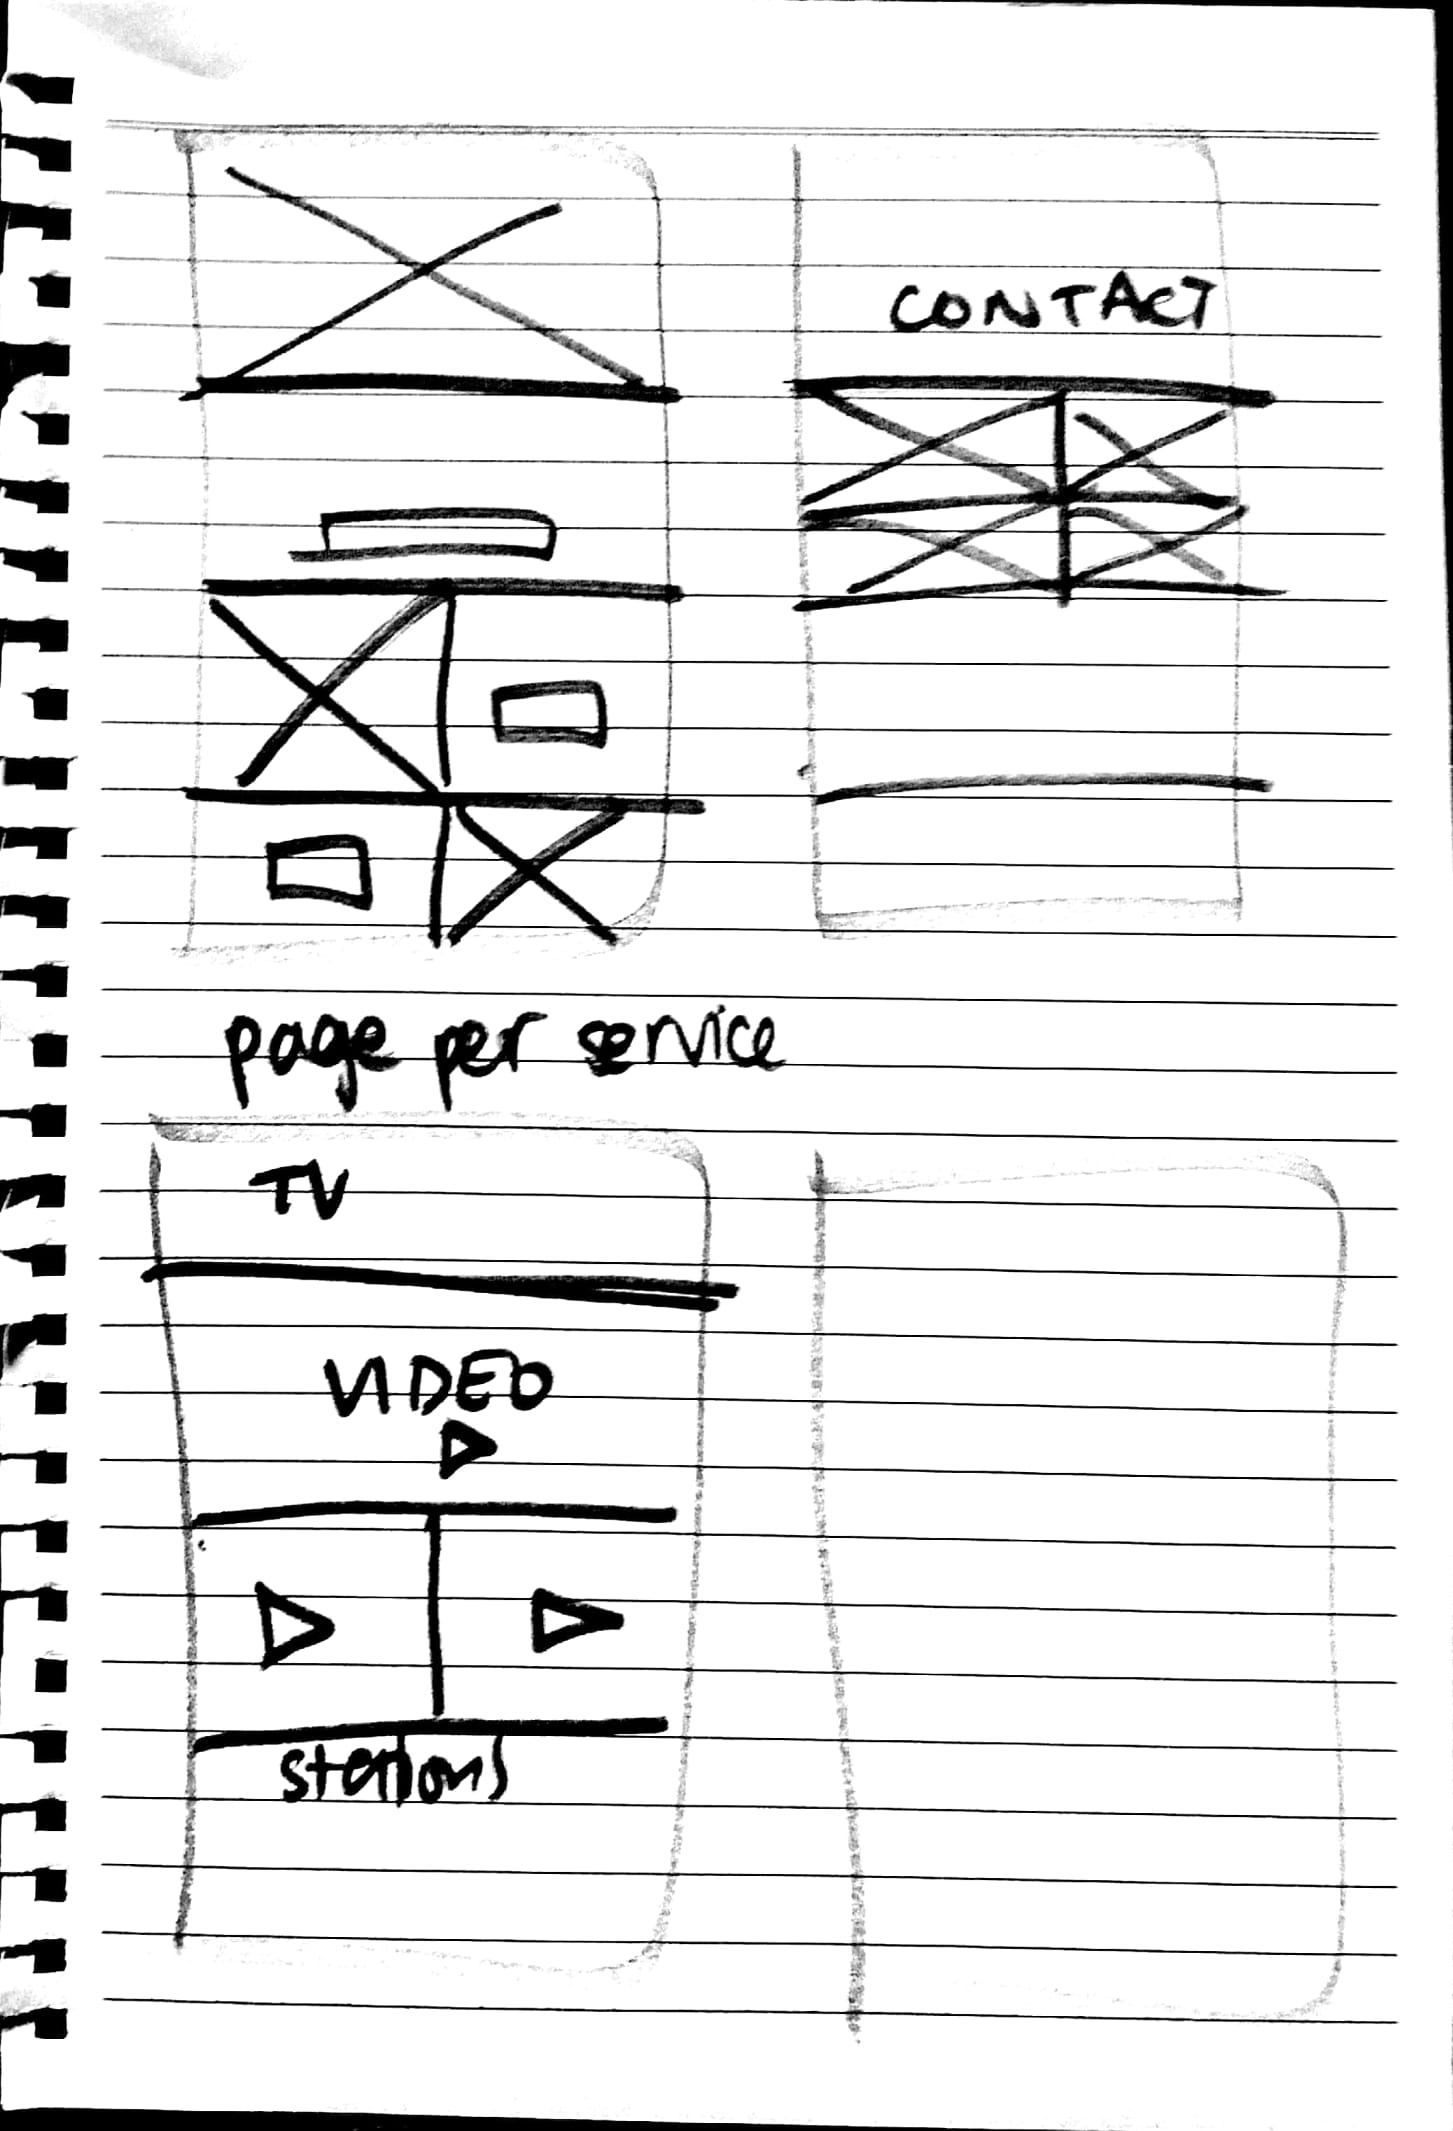 CONTACT
page per service
TV
VIDEO
stations